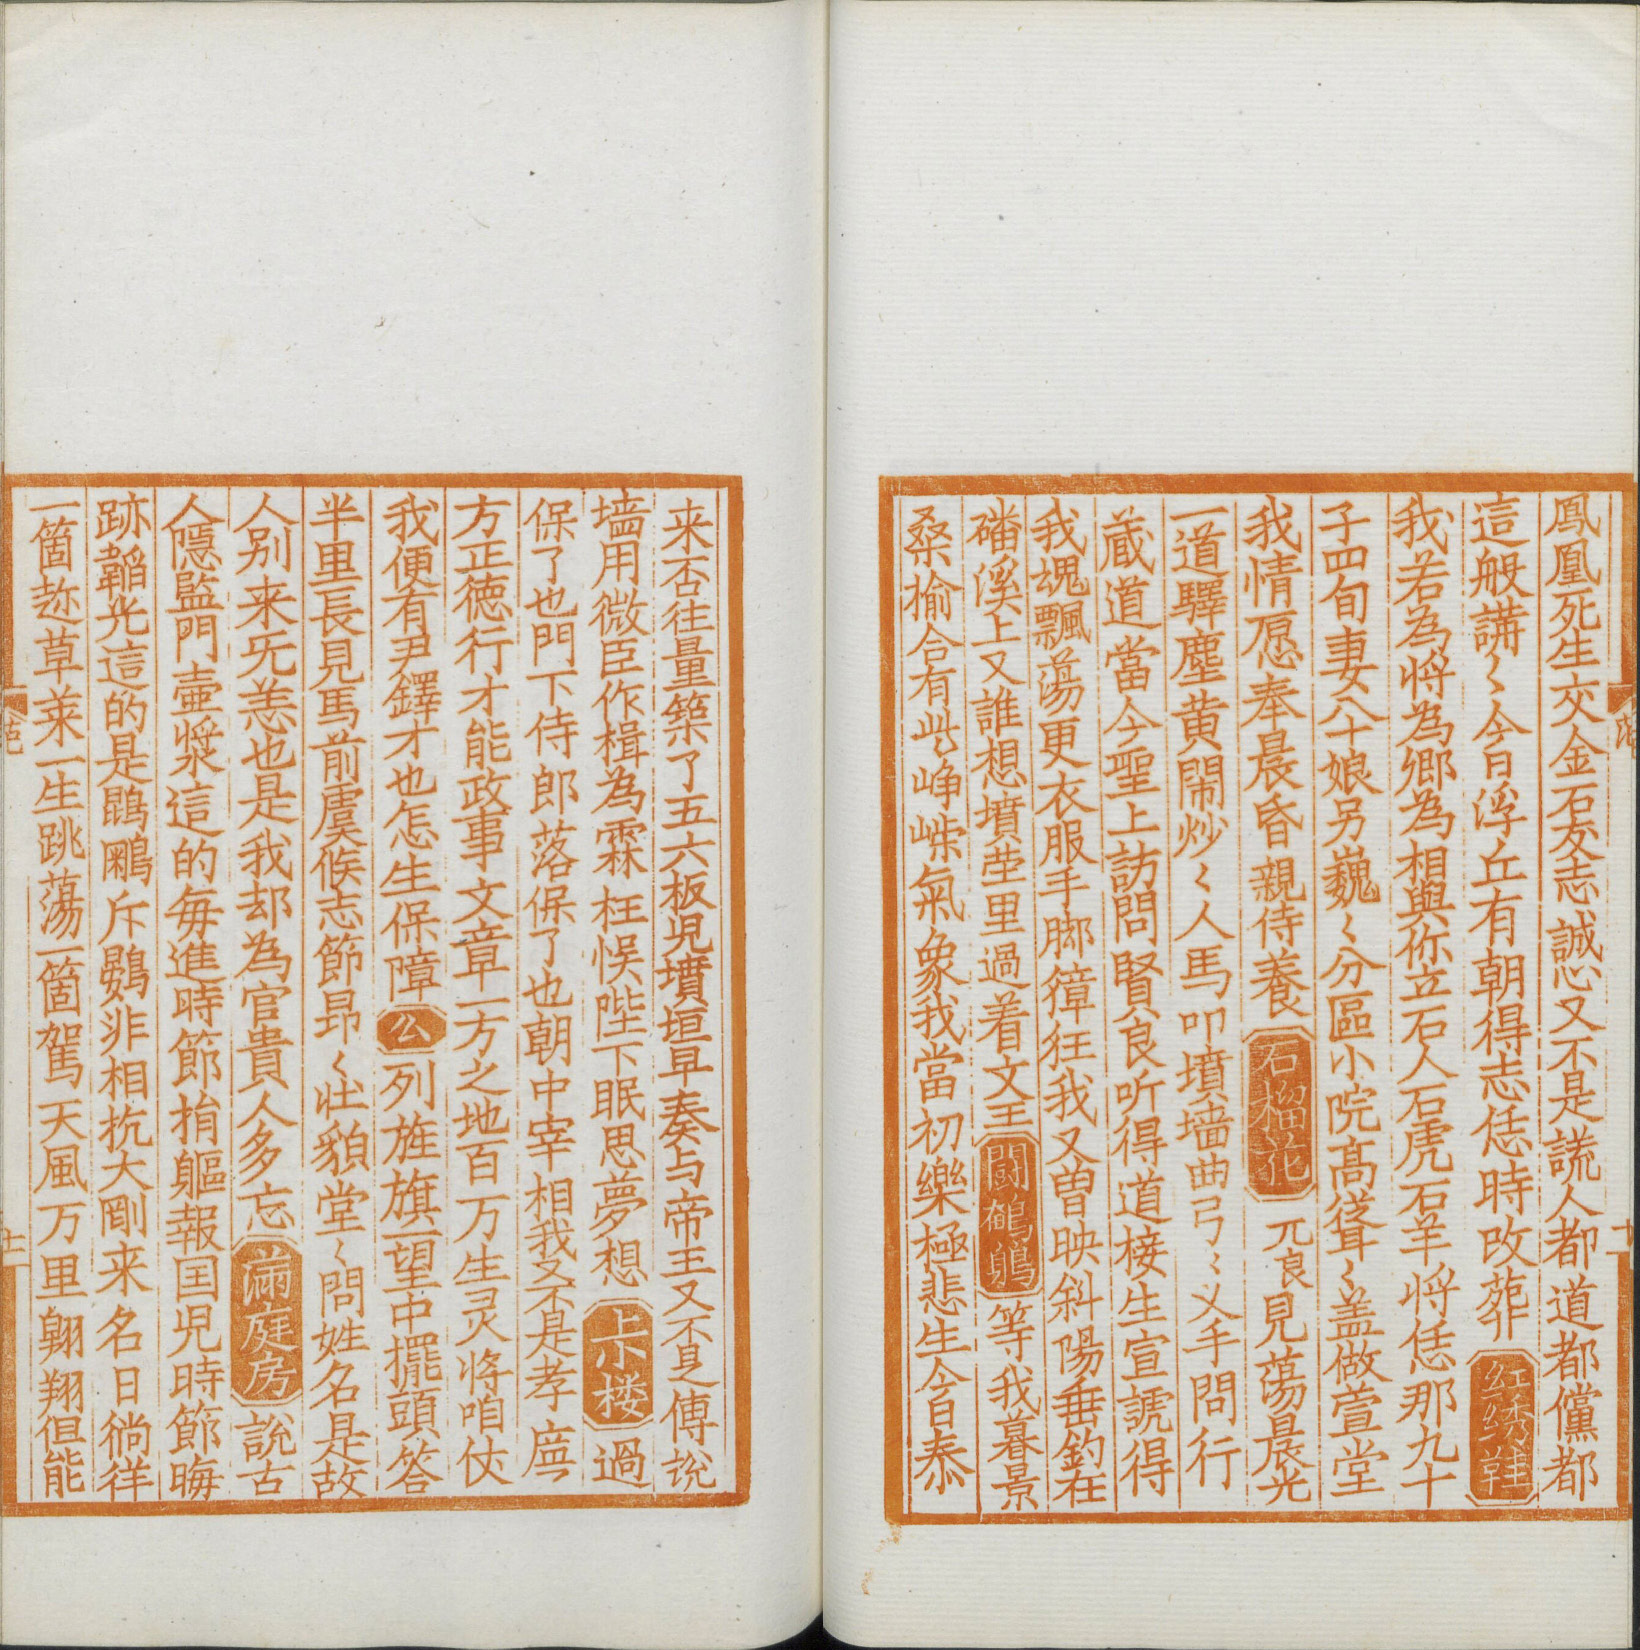 鳳凰死生交金石友志誠心又不是謊人都道都儻都
這般講〻今日浮丘有朝得志恁時改葬 红綉鞋
我若為将為卿為相與你立石人石虎石羊将恁那九十
子四旬妻八十娘另巍〻分區小院髙聳〻盖做萱堂
我情愿奉晨昏親侍養 石榴花 兀良見蕩晨光
一道驛塵黄鬧炒〻人馬叩墳墙曲弓〻义手問行
蔵道當今聖上訪問賢良听得道接生宣號得
我魂飄蕩更衣服手脚獐狂我又曽映斜陽垂釣在
磻溪上又誰想墳茔里過着文王 闘鵪鶉 等我暮景
桑榆合有此峥嵘氣象我當初樂極悲生今日泰
来否往量築了五六板児墳垣早奏与帝王又不是傅説
墙用微臣作楫為霖枉悮陛下眠思夢想 上小楼 過
保了也門下侍郎落保了也朝中宰相我又不是孝廉
方正徳行才能政事文章一方之地百万生灵将咱伏
我便有尹鐸才也怎生保障 公 列旌旗一望中擺頭答
半里長見馬前虞候志節昂〻壮貌堂〻問姓名是故
人别来旡恙也是我却為官貴人多忘 滿庭房 說古
人隱監門壷漿這的每進時節捐軀報囯児時節晦
跡韜光這的是鵾鵬斥鷃非相抗大剛来名日徜徉
一箇趂草莱一生跳蕩一箇駕天風万里翺翔但能